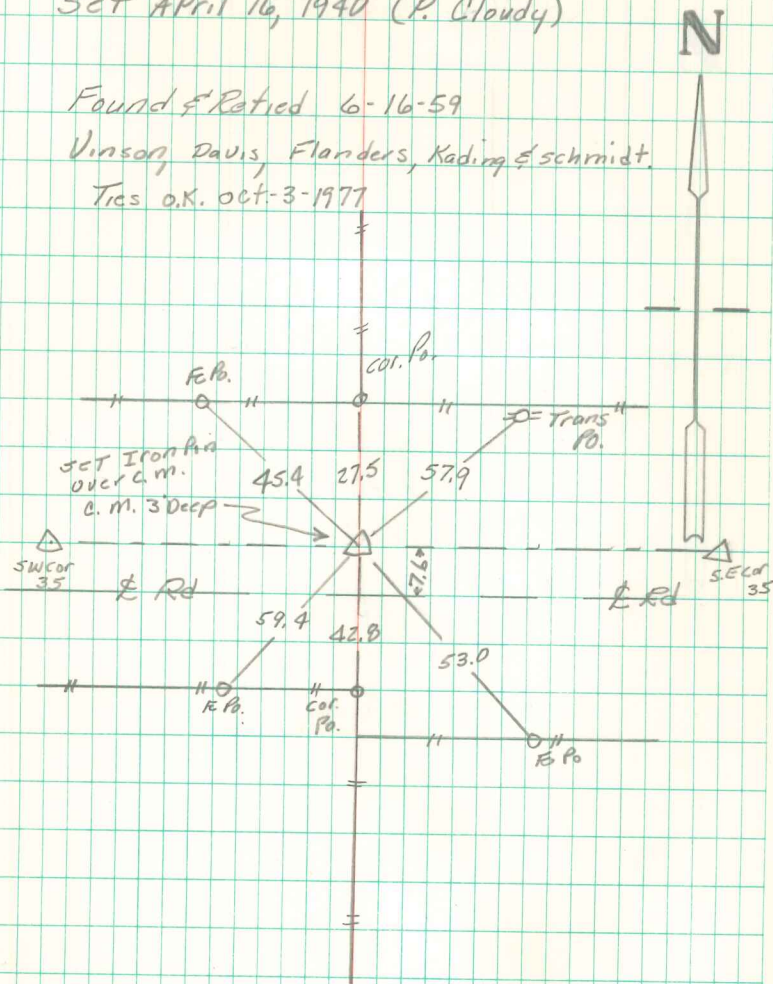 Set April 16, 1940 (P. Cloudy)
N
Found & Retied 6-16-59
Vinson, Davis, Flanders, Kading & schmidt.
Ties o.k. oct-3-1977
Fc Po.
cor. Po.
Trans
Po.
Set Iron Pin
over c.m.
c. m. 3' Deep
45.4
27.5
57.9
SW cor
35
S.E cor
35
℄ Rd
7.6
℄ Rd
59.4
42.8
53.0
Fc Po.
cor.
Po.
Fc Po